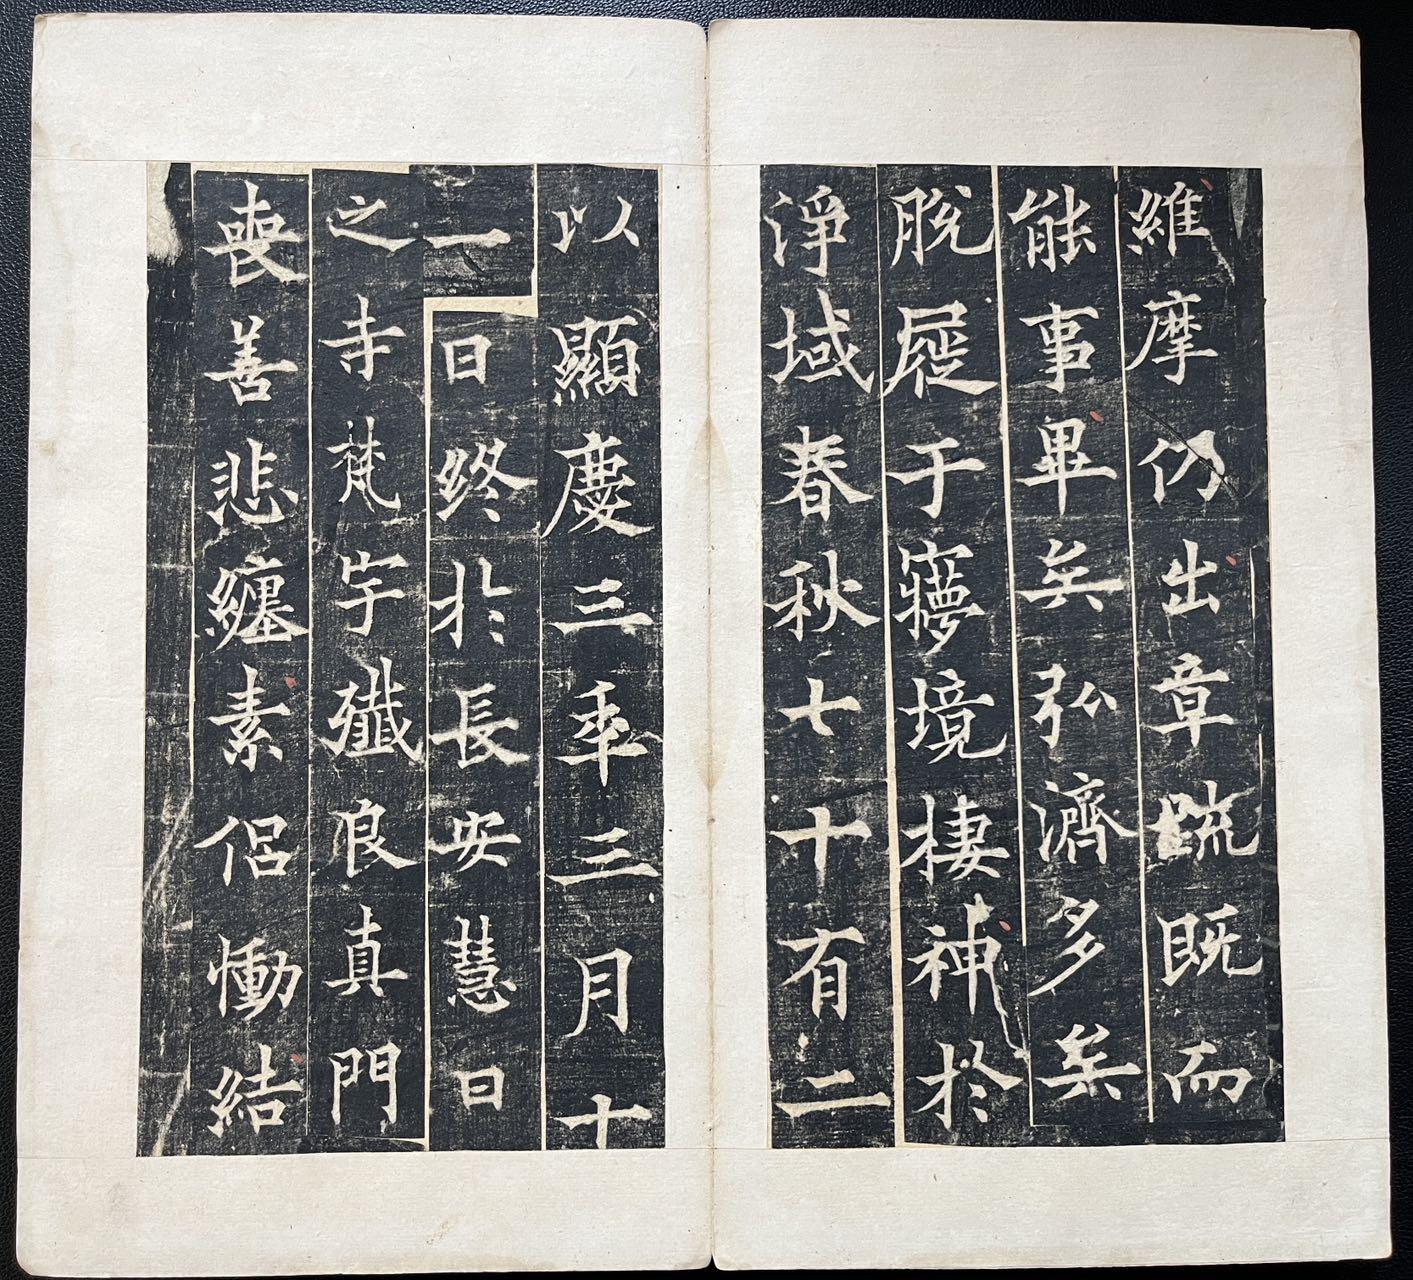 維摩仍出章疏既而
能事畢矣弘濟多矣
脫屣于寢境棲神於
淨域春秋七十有二
以顯慶三年三月十
一日終於長安慧日
之寺梵宇殲良真門
喪善悲纏素侶慟結